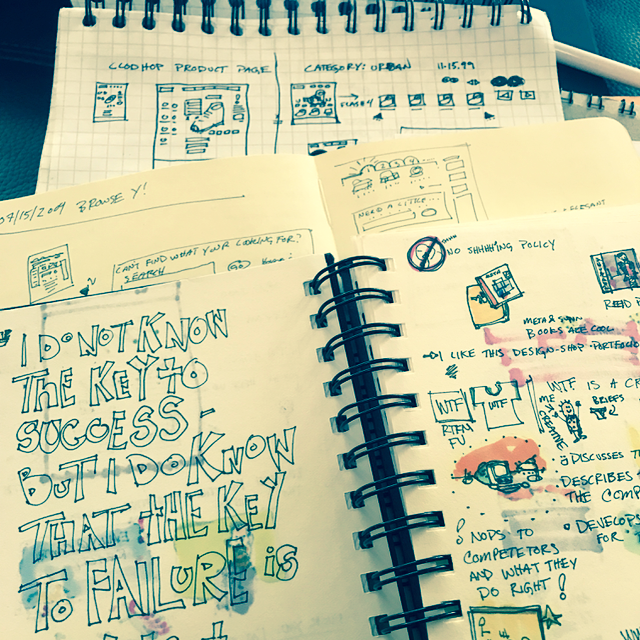 CLODHOP PRODUCT PAGE
CATEGORY: URBAN 11.15.99
07/15/2009 BROWSE Y!
CAN'T FIND WHAT YOUR LOOKING FOR?
SEARCH
NEED A
I DO NOT KNOW
THE KEY TO
SUCCESS -
BUT I DO KNOW
THAT THE KEY
TO FAILURE IS
NO SHHHH'ING POLICY
META &
BOOKS ARE COOL
READ
I LIKE THIS DESIGN-SHOP-PORTFOLIO
WTF
WTF
WTF IS A
ME
CREATIVE
BRIEFS
FU
DISCUSSES
DESCRIBES
THE COMP
DEVELOP
FOR
NODS TO
COMPETETORS
AND WHAT THEY
DO RIGHT!